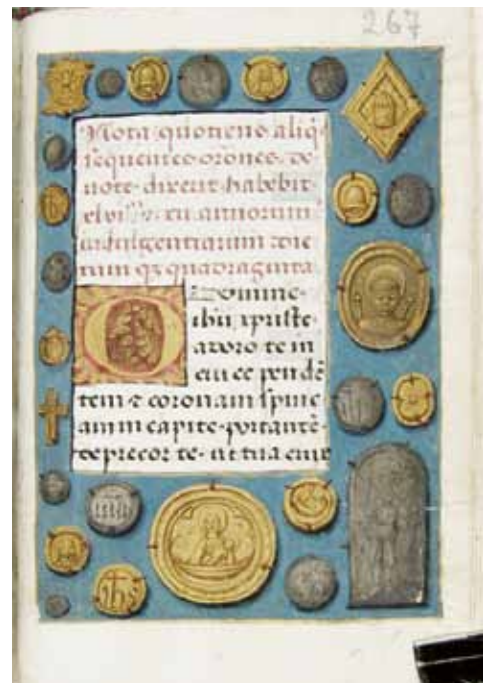 267
Nota quotiens aliq̄s
sequentes orōnes de
uote dixerit habebit
annorum
indulgentiarum
tum quadraginta
O Domine
ihu xpriste
adoro te in
cruce pendē
tem ⁊ coronam spine
am in capite portantē
deprecor te ut tua crux
ihs